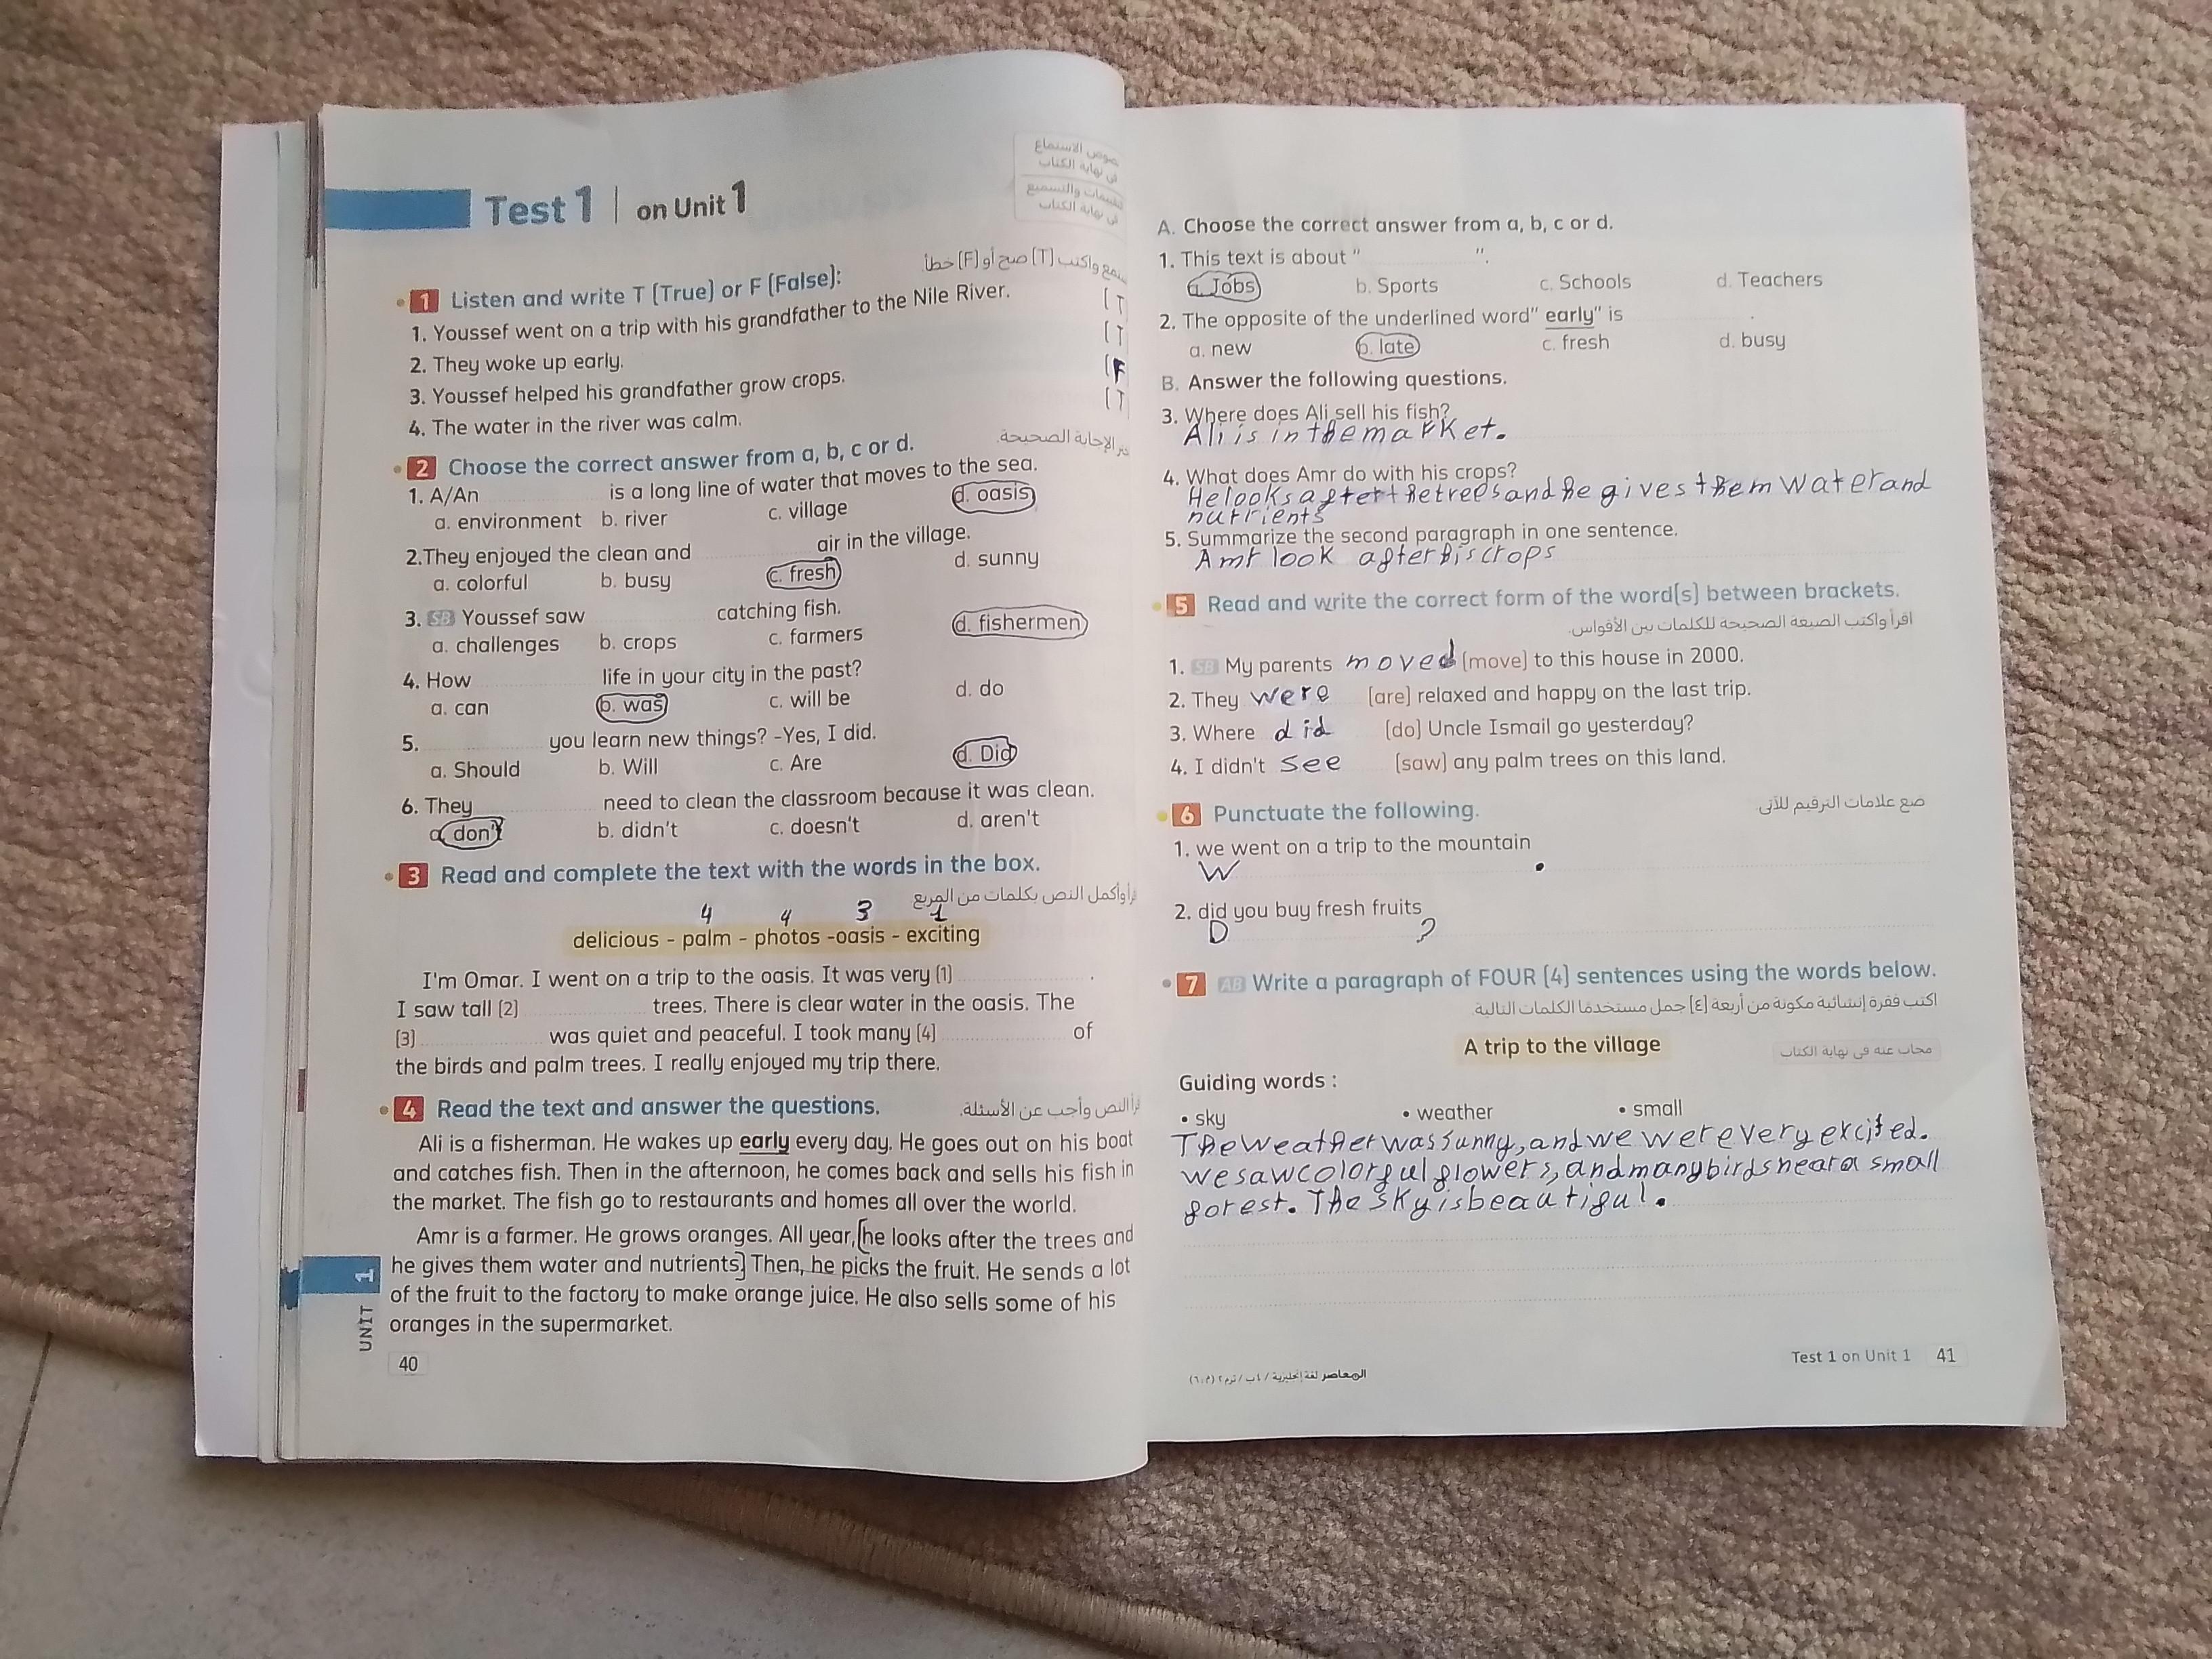 Test 1 | on Unit 1
نصوص الاستماع
فى نهاية الكتاب
فى نهاية الكتاب
1 Listen and write T (True) or F (False):
واكتب (T) صح أو (F) خطأ
1. Youssef went on a trip with his grandfather to the Nile River. [T
2. They woke up early. [T
3. Youssef helped his grandfather grow crops. [F
4. The water in the river was calm. [T
2 Choose the correct answer from a, b, c or d.
الإجابة الصحيحة.
1. A/An is a long line of water that moves to the sea.
a. environment b. river c. village d. oasis
2.They enjoyed the clean and air in the village.
a. colorful b. busy c. fresh d. sunny
3. SB Youssef saw catching fish.
a. challenges b. crops c. farmers d. fishermen
4. How life in your city in the past?
a. can b. was c. will be d. do
5. you learn new things? -Yes, I did.
a. Should b. Will c. Are d. Did
6. They need to clean the classroom because it was clean.
a. don't b. didn't c. doesn't d. aren't
3 Read and complete the text with the words in the box.
وأكمل النص بكلمات من المربع
4 4 3 1
delicious - palm - photos -oasis - exciting
I'm Omar. I went on a trip to the oasis. It was very (1) .
I saw tall (2) trees. There is clear water in the oasis. The
(3) was quiet and peaceful. I took many (4) of
the birds and palm trees. I really enjoyed my trip there.
4 Read the text and answer the questions.
النص وأجب عن الأسئلة.
Ali is a fisherman. He wakes up early every day. He goes out on his boat
and catches fish. Then in the afternoon, he comes back and sells his fish in
the market. The fish go to restaurants and homes all over the world.
Amr is a farmer. He grows oranges. All year, [he looks after the trees and
he gives them water and nutrients.] Then, he picks the fruit. He sends a lot
of the fruit to the factory to make orange juice. He also sells some of his
oranges in the supermarket.
UNIT 1
40
A. Choose the correct answer from a, b, c or d.
1. This text is about " ".
a. Jobs b. Sports c. Schools d. Teachers
2. The opposite of the underlined word" early" is .
a. new b. late c. fresh d. busy
B. Answer the following questions.
3. Where does Ali sell his fish?
Ali is in the market.
4. What does Amr do with his crops?
He looks after the trees and he gives them water and
nutrients
5. Summarize the second paragraph in one sentence.
Amr look after his crops
5 Read and write the correct form of the word(s) between brackets.
اقرأ واكتب الصيغة الصحيحة للكلمات بين الأقواس.
1. SB My parents moved (move) to this house in 2000.
2. They were (are) relaxed and happy on the last trip.
3. Where did (do) Uncle Ismail go yesterday?
4. I didn't see (saw) any palm trees on this land.
6 Punctuate the following.
ضع علامات الترقيم للآتى
1. we went on a trip to the mountain
W .
2. did you buy fresh fruits
D ?
7 AB Write a paragraph of FOUR (4) sentences using the words below.
اكتب فقرة إنشائية مكونة من أربعة (٤) جمل مستخدمًا الكلمات التالية.
A trip to the village
مجاب عنه فى نهاية الكتاب
Guiding words :
• sky • weather • small
The weather was sunny, and we were very excited.
we saw colorful flowers, and many birds near a small
forest. The sky is beautiful.
المعاصر لغة إنجليزية
Test 1 on Unit 1 41